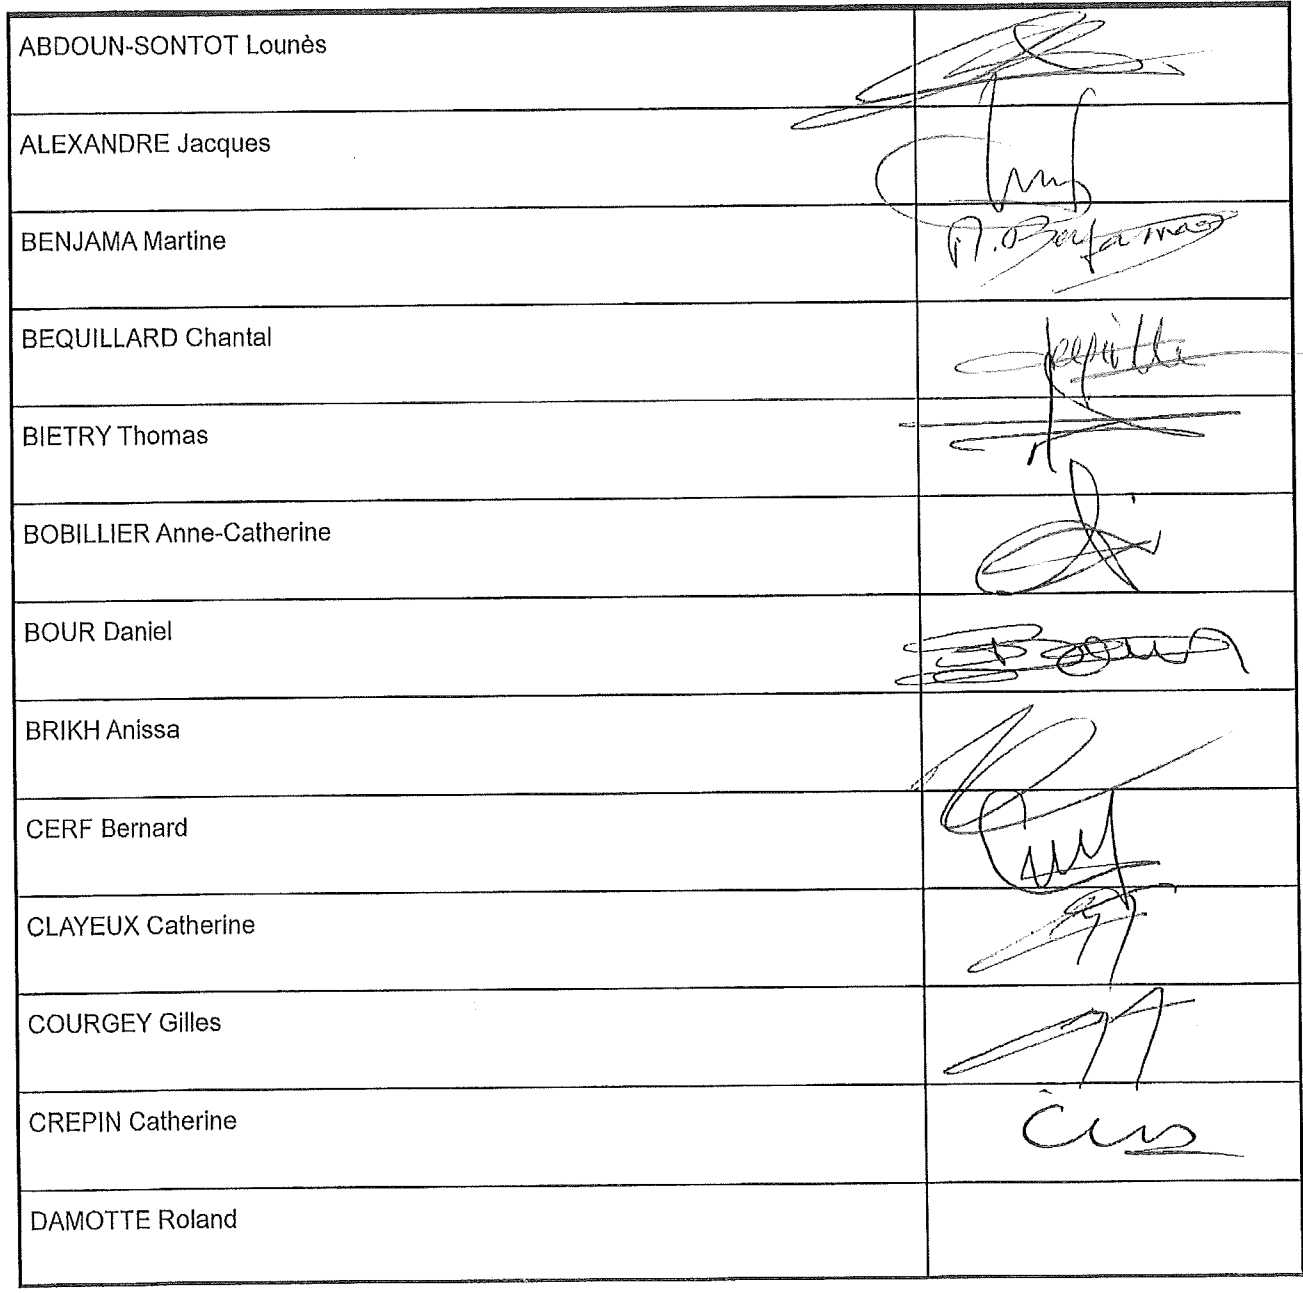 ABDOUN-SONTOT Lounès
ALEXANDRE Jacques
BENJAMA Martine
M. Benjama
BEQUILLARD Chantal
BIETRY Thomas
BOBILLIER Anne-Catherine
BOUR Daniel
BRIKH Anissa
CERF Bernard
CLAYEUX Catherine
COURGEY Gilles
CREPIN Catherine
DAMOTTE Roland